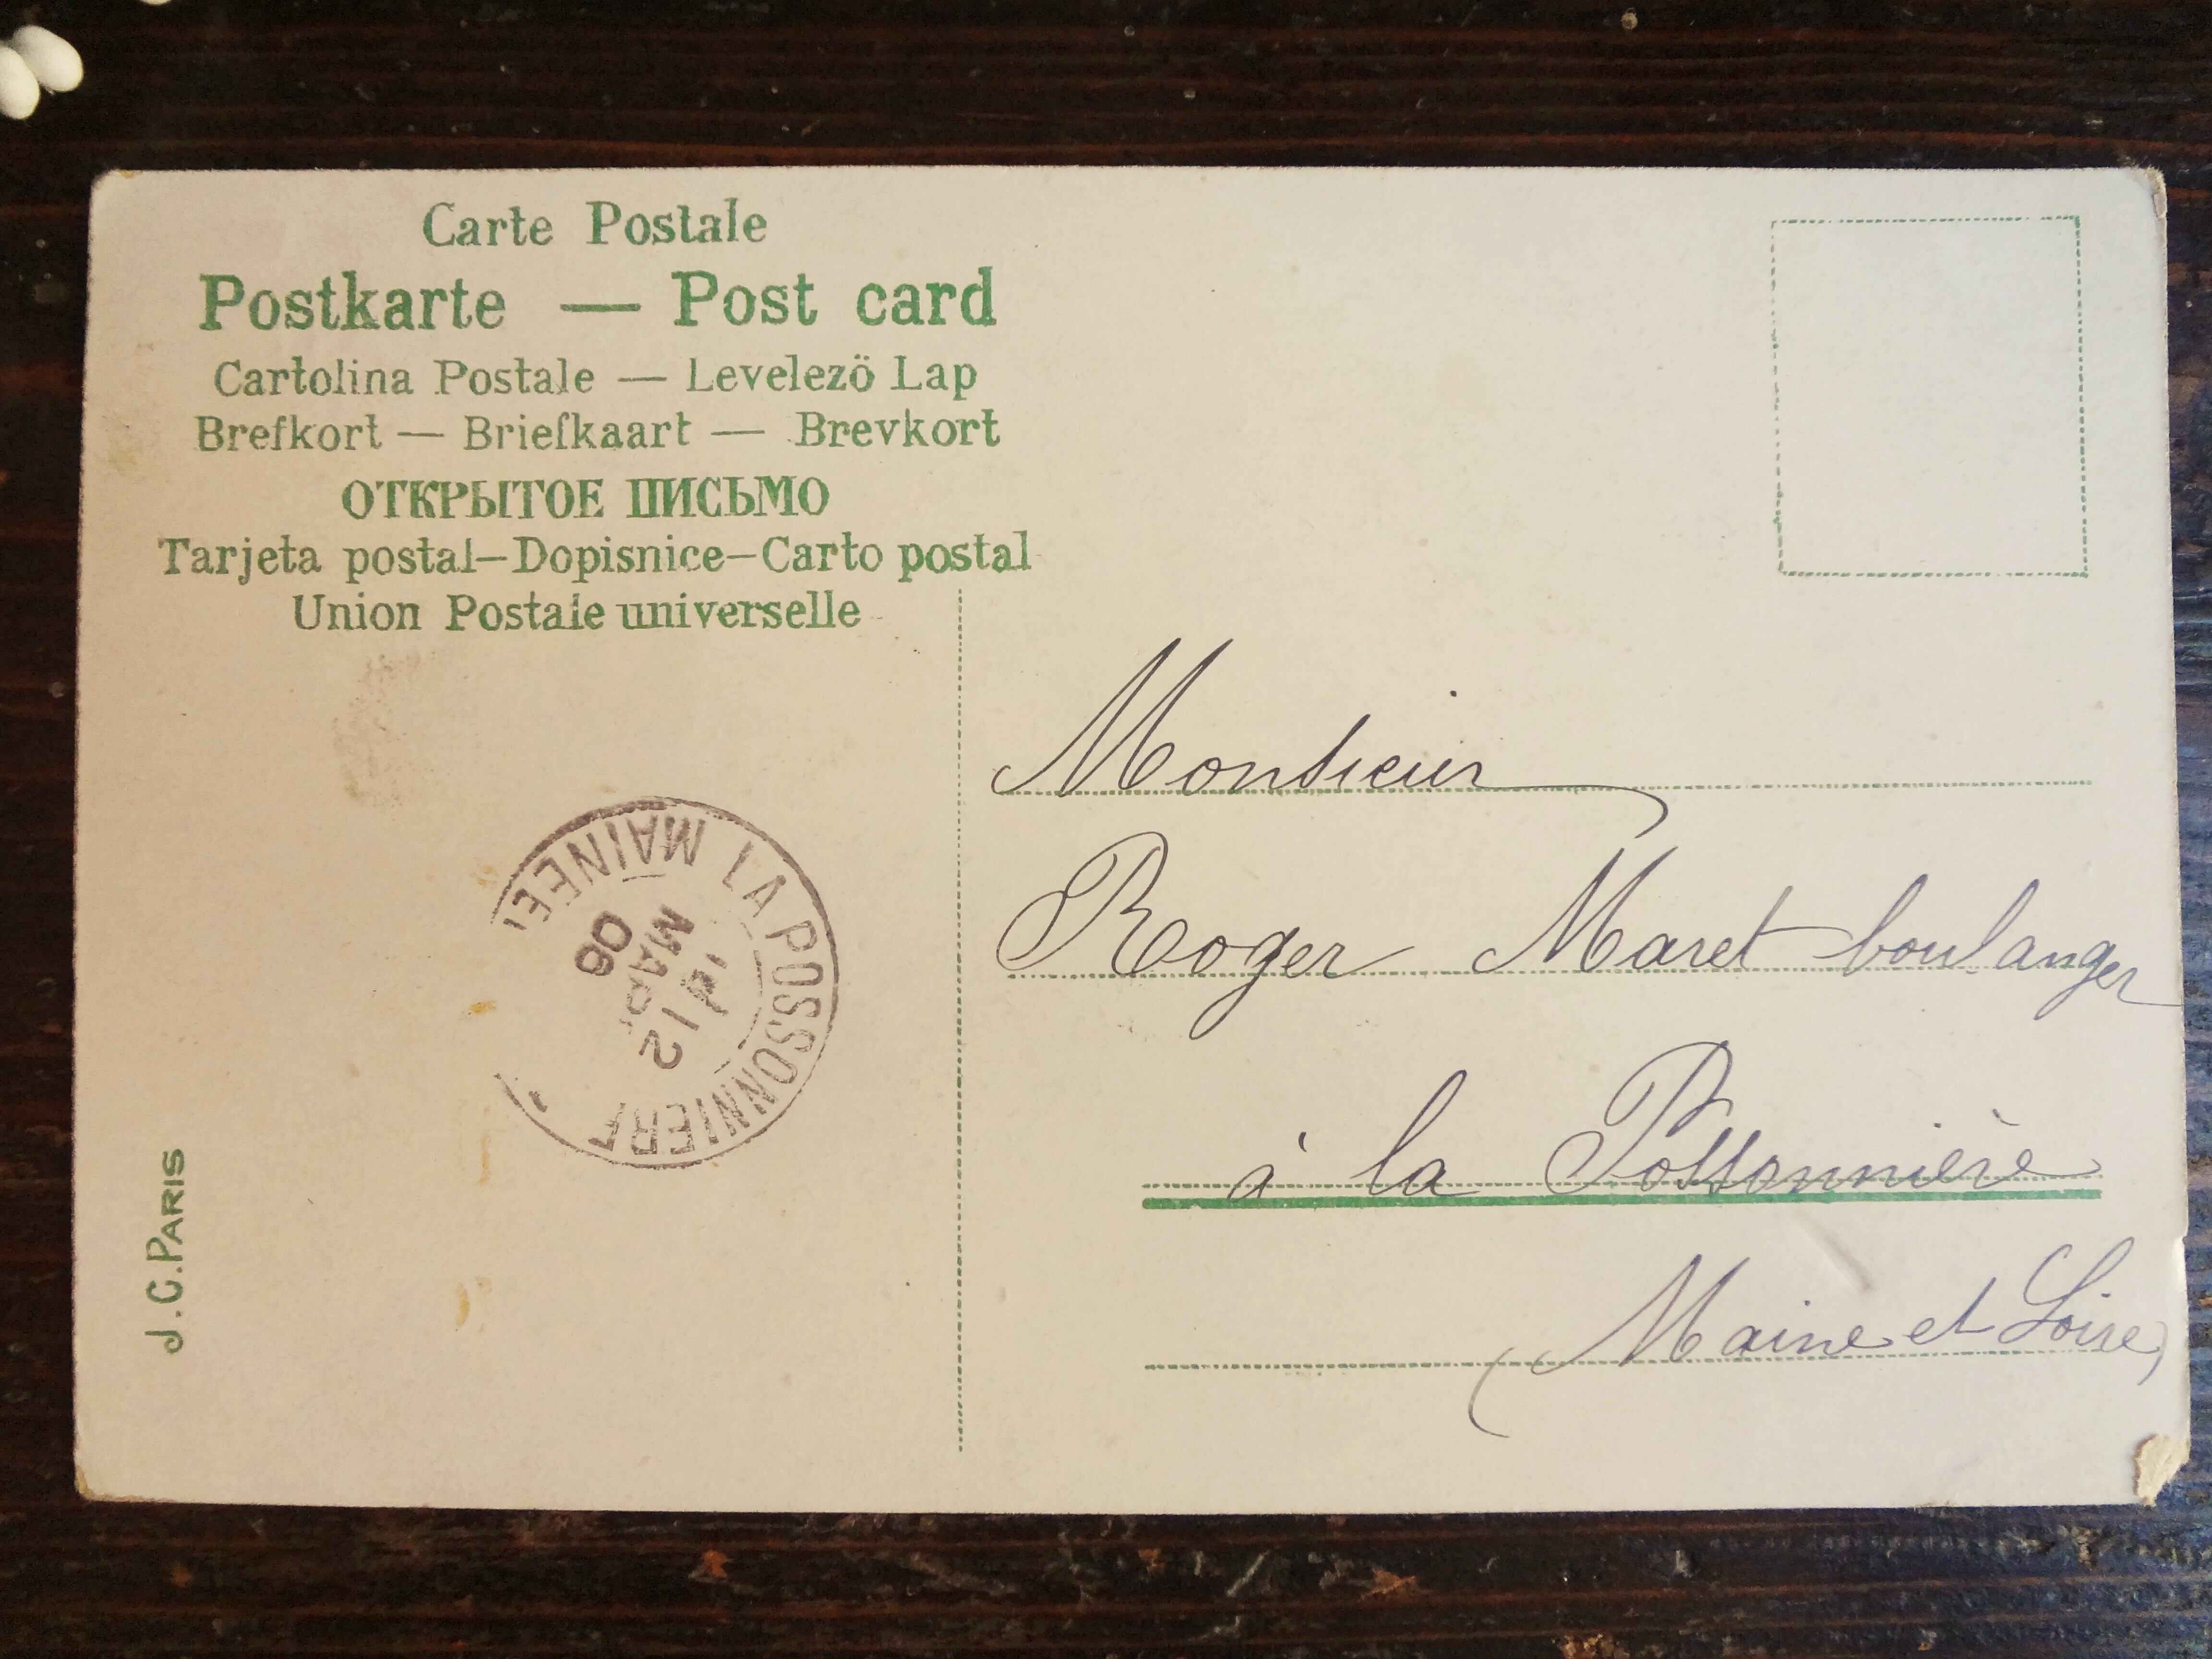 Carte Postale
Postkarte — Post card
Cartolina Postale — Levelezö Lap
Brefkort — Briefkaart — Brevkort
ОТКРЫТОЕ ПИСЬМО
Tarjeta postal–Dopisnice–Carto postal
Union Postale universelle
LA POSSONNIERE MAINE ET
12
MARS
06
J.C. PARIS
Monsieur
Roger Maret boulanger
à la Possonnière
(Maine et Loire)